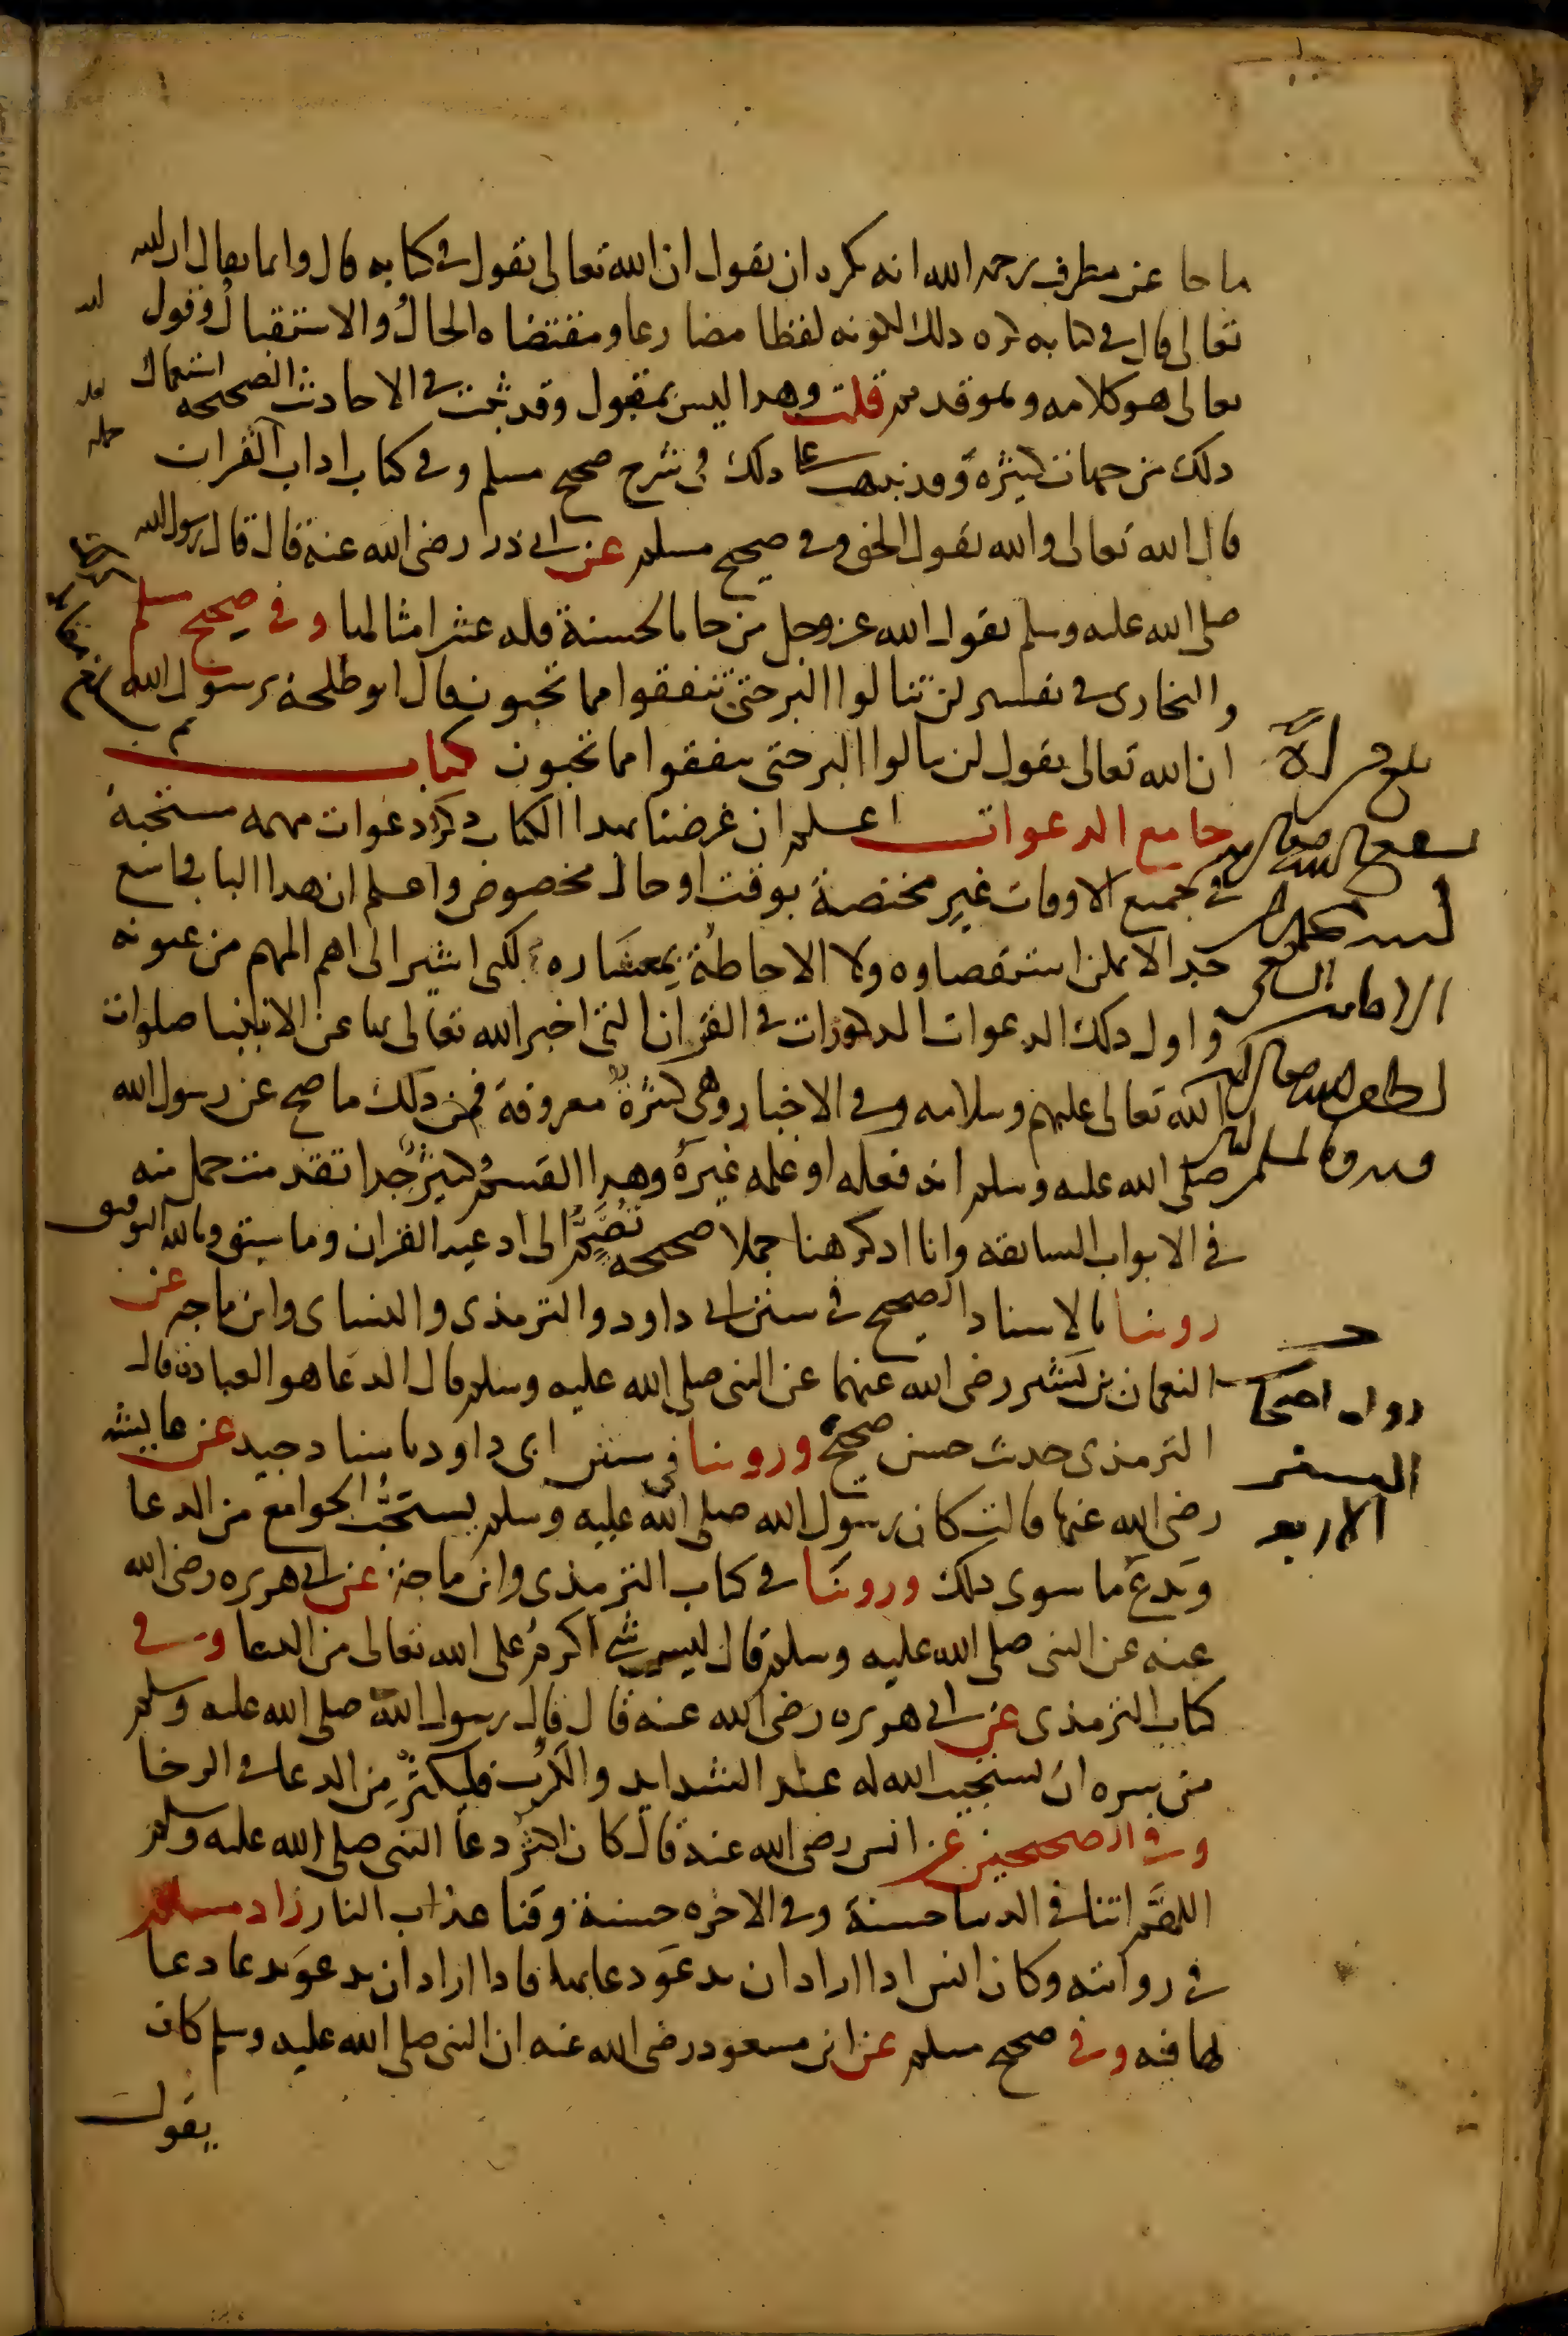 ما جا عن مطرف رحمه الله انه كره ان يقول ان الله تعالى يقول في كتابه قال وانما يقال ان الله
تعالى قال في كتابه كره ذلك لكونه لفظا مضارعا ومقتضاه الحال والاستقبال وقول
تعالى هو كلامه وهو قديم قلت وهذا ليس بمقبول وقد ثبت في الاحاديث الصحيحه استعمال
ذلك من جهات كثيرة وقد نبهت على ذلك في شرح صحيح مسلم وفي كتاب اداب القران
قال الله تعالى والله يقول الحق وفي صحيح مسلم عن ابي ذر رضي الله عنه قال قال رسول الله
صلى الله عليه وسلم يقول الله عز وجل من جا بالحسنة فله عشر امثالها وفي صحيح مسلم
والبخاري في تفسير لن تنالوا البر حتى تنفقوا مما تحبون فقال ابو طلحة يرسول الله
ان الله تعالى يقول لن تنالوا البر حتى تنفقوا مما تحبون كتاب
جامع الدعوات اعلم ان غرضنا بهذا الكتاب ذكر دعوات مهمه مستحبة
في جميع الاوقات غير مختصة بوقت او حال مخصوص واعلم ان هذا الباب واسع
جدا لا يمكن استقصاوه ولا الاحاطة بمعشاره لكني اشير الى اهم المهم من عيونه
واول ذلك الدعوات المذكورات في القران التي اخبر الله تعالى بها عن الانبيا صلوات
الله تعالى عليهم وسلامه وفي الاخيار وهي كثيرة معروفة فمن ذلك ما صح عن رسول الله
صلى الله عليه وسلم انه فعله او علمه غيره وهذا القسم كثير جدا تقدمت جمل منه
في الابواب السابقه وانا اذكر هنا جملا صحيحه تضم الى ادعيه القران وما سبق وبالله التوفيق
روينا بالاسناد الصحيح في سنن ابي داود والترمذي والنساي وابن ماجه عن
النعمان بن بشير رضي الله عنهما عن النبي صلى الله عليه وسلم قال الدعا هو العبادة قال
الترمذي حديث حسن صحيح وروينا في سنن ابي داود باسناد جيد عن عايشه
رضي الله عنها قالت كان رسول الله صلى الله عليه وسلم يستحب الجوامع من الدعا
ويدع ما سوى ذلك وروينا في كتاب الترمذي وابن ماجة عن ابي هريره رضي الله
عنه عن النبي صلى الله عليه وسلم قال ليس شي اكرم على الله تعالى من الدعا وفي
كتاب الترمذي عن ابي هريره رضي الله عنه قال قال رسول الله صلى الله عليه وسلم
من سره ان يستجيب الله له عند الشدايد والكرب فليكثر من الدعا في الرخا
وفي الصحيحين عن انس رضي الله عنه قال كان اكثر دعا النبي صلى الله عليه وسلم
اللهم اتنا في الدنيا حسنة وفي الاخره حسنة وقنا عذاب النار زاد مسلم
في روايته وكان انس اذا اراد ان يدعو دعا بها فاذا اراد ان يدعو بدعا دعا
بها فيه وفي صحيح مسلم عن ابن مسعود رضي الله عنه ان النبي صلى الله عليه وسلم كان
يقول
رواه اصحاب
السنن
الاربعه